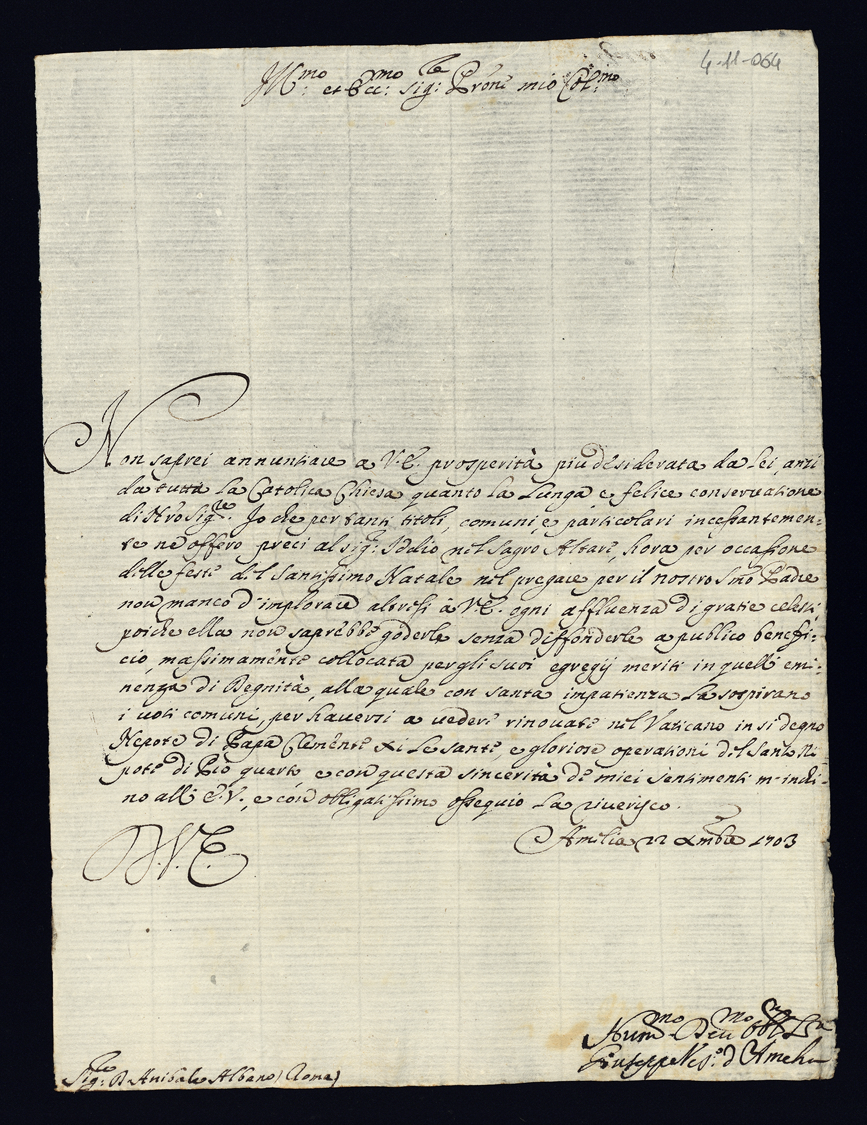 4-11-064
Ill.mo et Ecc.mo Sig.re Pron. mio Col.mo
Non saprei annuntiare a V.E. prosperità più desiderata da Lei, anzi
da tutta la Catolica Chiesa, quanto la lunga, e felice conservatione
di Nro Sig.re. Io che per tanti titoli, comuni, e particolari incessantemen=
te ne offero preci al Sig.r Iddio nel Sagro Altare, hora per occassione
delle feste del Santissimo Natale nel pregare per il nostro Smo Padre
non manco d'implorare altresi à V.E. ogni affluenza di gratie celesti,
poiche ella non saprebbe goderle senza diffonderle a publico benefi=
cio, massimamente collocata per gli suoi egregij meriti in quelle emi=
nenza di Degnità, alla quale con santa impatienza la sospirano
i voti comuni, per haversi a vedere rinovate nel Vaticano in si degno
Nepote di Papa Clemente XI le sante, e gloriose operationi del Santo Ni=
pote di Pio quarto, e con questa sincerità de miei sentimenti m'inchi=
no all' E.V., e con obligatissimo ossequio la riverisco.
Amelia 22 Xmbre 1703
D.V.E.
Hum.mo Dev.mo
Giuseppe Ves.o d'Amelia
Sig.re D. Anibale Albano (Roma)